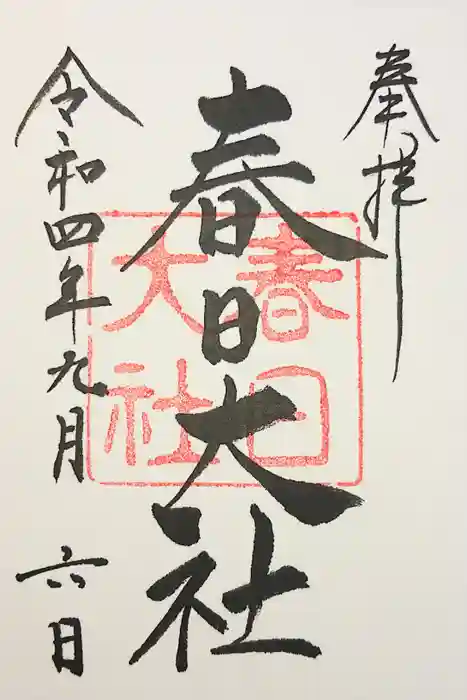 奉拝
春日大社
春日
大社
令和四年九月六日